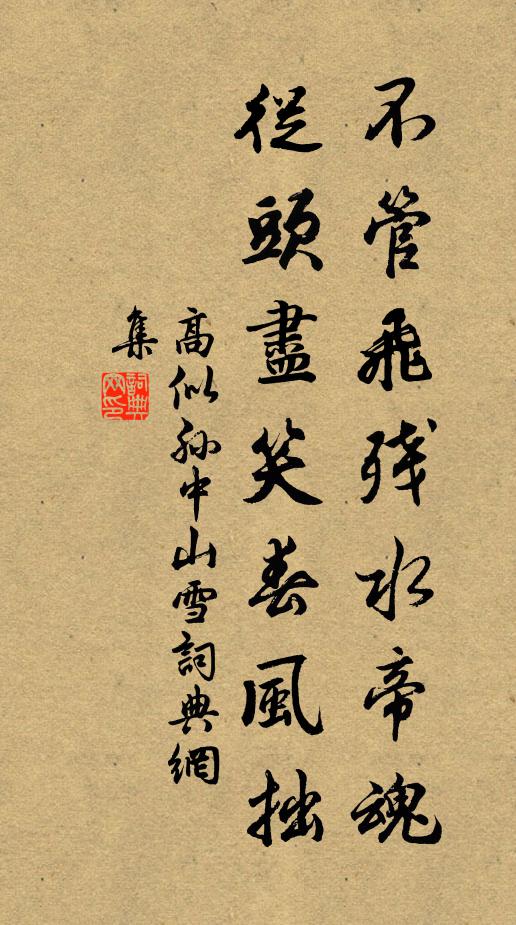 不管飛殘水帝魂
從頭盡笑春風拙
高似孫中山雪詞典網
集
詞典
网印